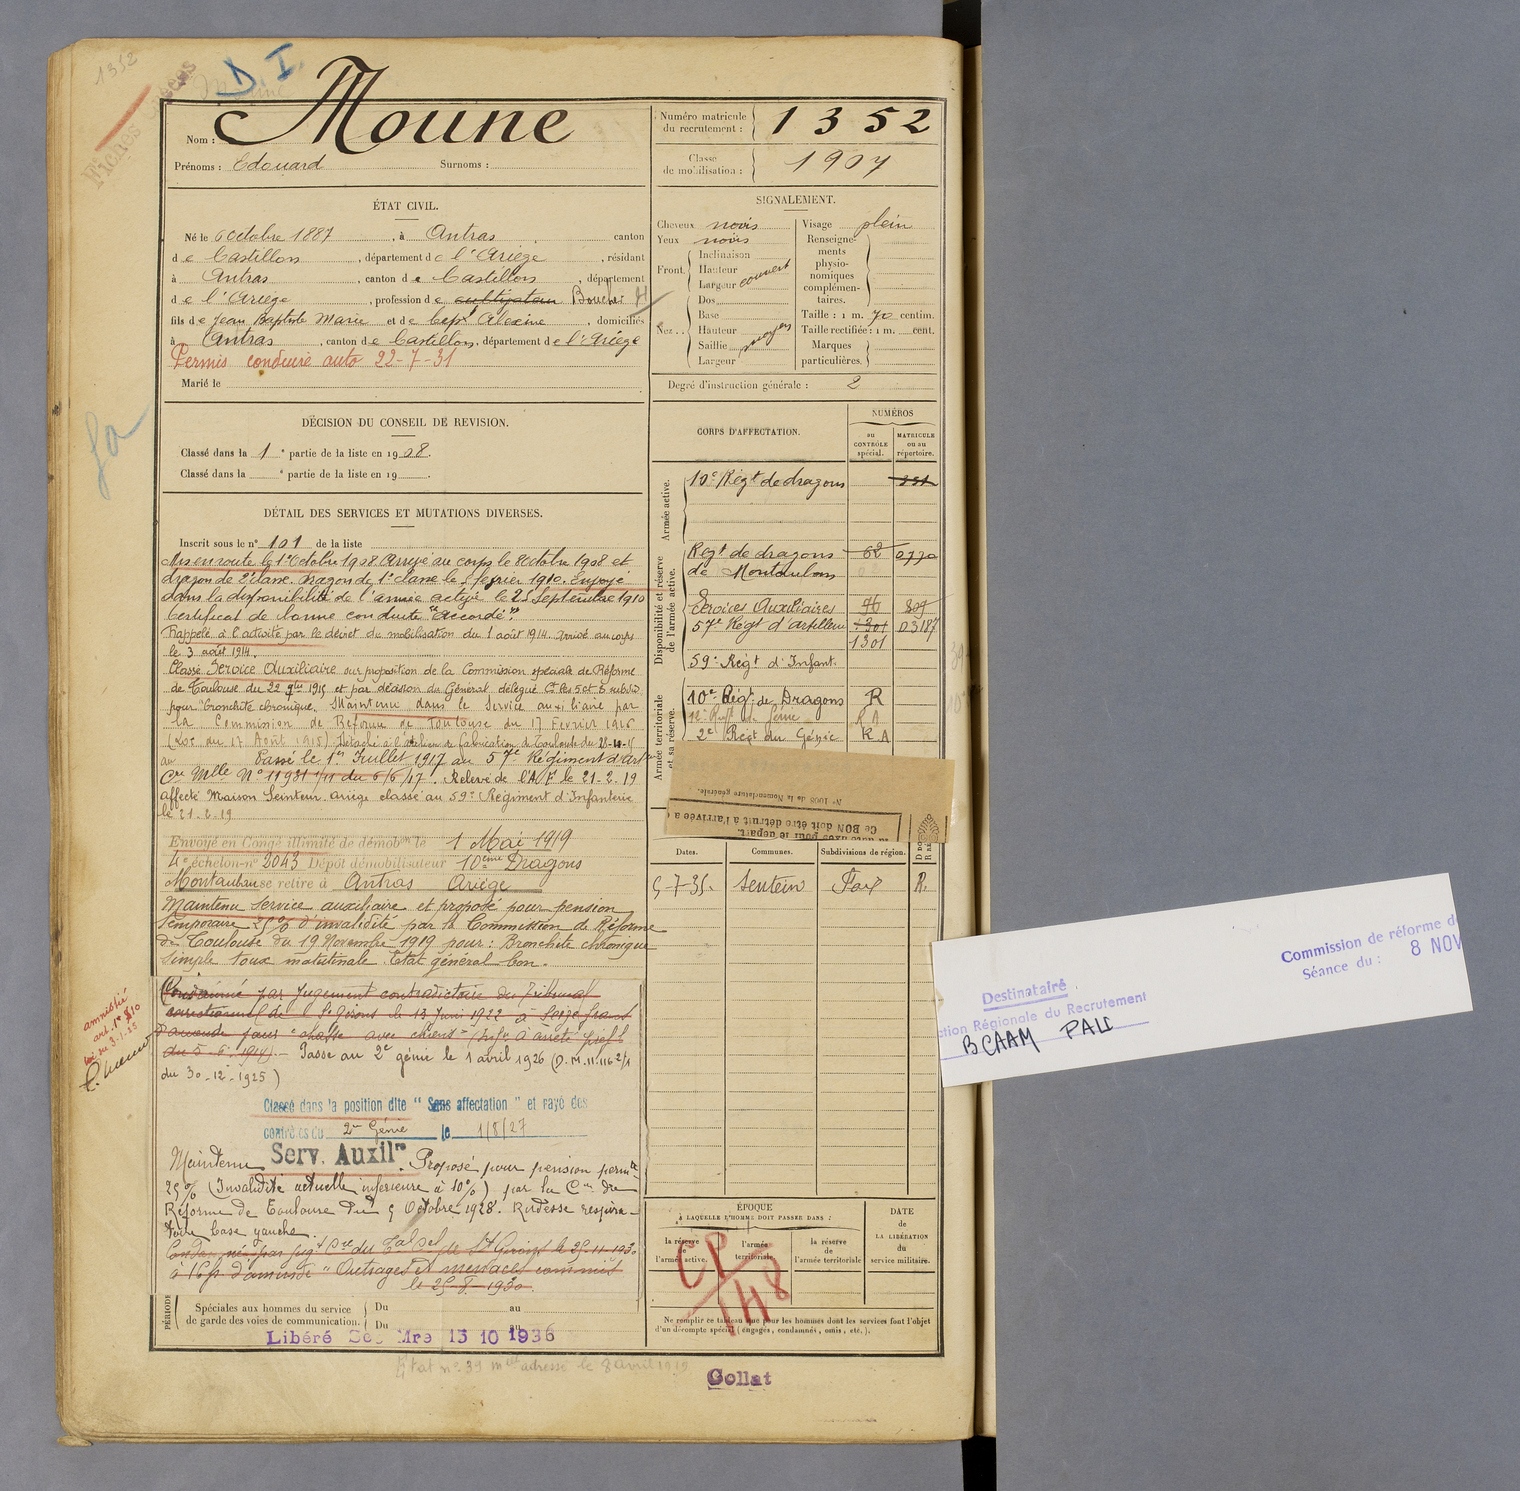 1352
D I.
Fiches
Nom : Moune
Prénoms : Edouard Surnoms :
Numéro matricule
du recrutement : 1352
Classe
de mobilisation : 1907
ÉTAT CIVIL.
Né le 6 octobre 1887, à Antras, canton
de Castillon, département de l'Ariège, résidant
à Antras, canton de Castillon, département
de l'Ariège, profession de cultivateur Boucher
fils de Jean Baptiste Marie et de Alexine, domiciliés
à Antras, canton de Castillon, département de l'Ariège
Permis conduire auto 22-7-31
Marié le
SIGNALEMENT.
Cheveux noirs
Yeux noirs
Front. Inclinaison
Hauteur
Largeur couvert
Nez.. Dos
Base
Hauteur moyen
Saillie
Largeur
Visage plein
Renseigne-
ments
physio-
nomiques
complémen-
taires.
Taille : 1 m. 70 centim.
Taille rectifiée : 1 m. cent.
Marques
particulières.
Degré d'instruction générale : 2
DÉCISION DU CONSEIL DE REVISION.
Classé dans la 1e partie de la liste en 1908.
Classé dans la e partie de la liste en 19 .
DÉTAIL DES SERVICES ET MUTATIONS DIVERSES.
Inscrit sous le n° 101 de la liste
Mis en route le 1er Octobre 1908. Arrivé au corps le 8 Octobre 1908 et
dragon de 2e classe. Dragon de 1e classe le février 1910. Envoyé
dans la disponibilité de l'armée active le 25 Septembre 1910
Certificat de bonne conduite "Accordé".
Rappelé à l'activité par le décret de mobilisation du 1 août 1914. Arrivé au corps
le 3 août 1914.
Classé Service Auxiliaire sur proposition de la Commission spéciale de Réforme
de Toulouse du 22 1915 et par décision du Général délégué
pour "bronchite chronique. Maintenu dans le Service auxiliaire par
la Commission de Réforme de Toulouse du 17 Février 1916
(Loi du 17 Août 1915) Détaché à l'atelier de fabrication de Toulouse du
au Passé le 1er Juillet 1917 au 57e Régiment d'art
Cre Mlle N° 11931 1/11 du 6/6/17. Relevé de l'A.F le 21-2-19
affecté Maison Seintein ariège classé au 59e Régiment d'Infanterie
le 21-2-19
Envoyé en Congé illimité de démobon le 1 Mai 1919
4e échelon-n° 2043 Dépôt démobilisateur 10ème Dragons
Montauban se retire à Antras Ariège
Maintenu Service auxiliaire et proposé pour pension
temporaire 25% d'invalidité par la Commission de Réforme
de Toulouse du 19 Novembre 1919 pour : Bronchite chronique
simple toux matutinale. Etat général bon.
Condamné par jugement contradictoire du Tribunal
correctionnel de St Girons le 13 Juin 1922 à Seize francs
d'amende pour "chasse avec chiens"
Passé au 2e génie le 1 avril 1926 (D.M. 11.116 2/1
du 30-12-1925)
amnistié
art. 1er
loi du 3-1-25
Classé dans la position dite " Sans affectation " et rayé des
contrôles du 2me Génie le 1/8/27
Maintenu Serv. Auxilre. Proposé pour pension permte
25% (Invalidité actuelle inférieure à 10%) par la Con de
Réforme de Toulouse du 5 Octobre 1928. Rudesse respira-
toire base gauche.
Condamné par jugt cre du de St Girons le 25-11-1930
à 16 fr d'amende "Outrages et menaces commis
le 25-8-1930.
PÉRIODE
Spéciales aux hommes du service
de garde des voies de communication.
Du au
Du au
Libéré Mre 13 10 1936
Etat n° 39 adressé le 8 avril 1919
Gollat
CORPS D'AFFECTATION.
NUMÉROS
au
CONTRÔLE
spécial.
MATRICULE
ou au
répertoire.
Armée active.
10e Régt de dragons
Disponibilité et réserve
de l'armée active.
Régt de dragons 62 0770
de Montauban
Services Auxiliaires 96 809
57e Régt d'artillerie 1301 03187
1301
59e Régt d'Infant.
Armée territoriale
et sa réserve.
10e Régt de Dragons R
R A
2e Régt du Génie R.A
N° 1008 de la Nomenclature générale.
Ce BON doit être détruit à l'arrivée
Dates. Communes. Subdivisions de région.
5-7-31. Sentein Foix R.
ÉPOQUE
à LAQUELLE L'HOMME DOIT PASSER DANS :
la réserve
de
l'armée active.
l'armée
territoriale.
la réserve
de
l'armée territoriale
DATE
de
LA LIBÉRATION
du
service militaire.
CP
148
Ne remplir ce tableau que pour les hommes dont les services font l'objet
d'un décompte spécial (engagés, condamnés, omis, etc.).
Commission de réforme d
Séance du : 8 NOV
Destinataire
ction Régionale du Recrutement
BCAAM PAU